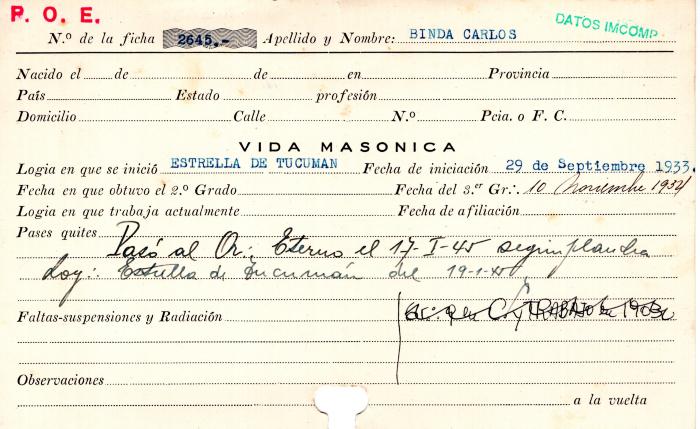 P. O. E.
DATOS IMCOMP.
N.º de la ficha 2645.- Apellido y Nombre: BINDA CARLOS
Nacido el de de en Provincia
País Estado profesión
Domicilio Calle N.º Pcia. o F. C.
VIDA MASONICA
Logia en que se inició ESTRELLA DE TUCUMAN Fecha de iniciación 29 de Septiembre 1933.
Fecha en que obtuvo el 2.º Grado Fecha del 3.er Gr∴ 10 Noviembre 1934
Logia en que trabaja actualmente Fecha de afiliación
Pases quites Pasó al Or∴ Eterno el 17-I-40 según plancha
Log∴ Estrella de Tucumán del 19-1-40
Faltas-suspensiones y Radiación
Observaciones
a la vuelta